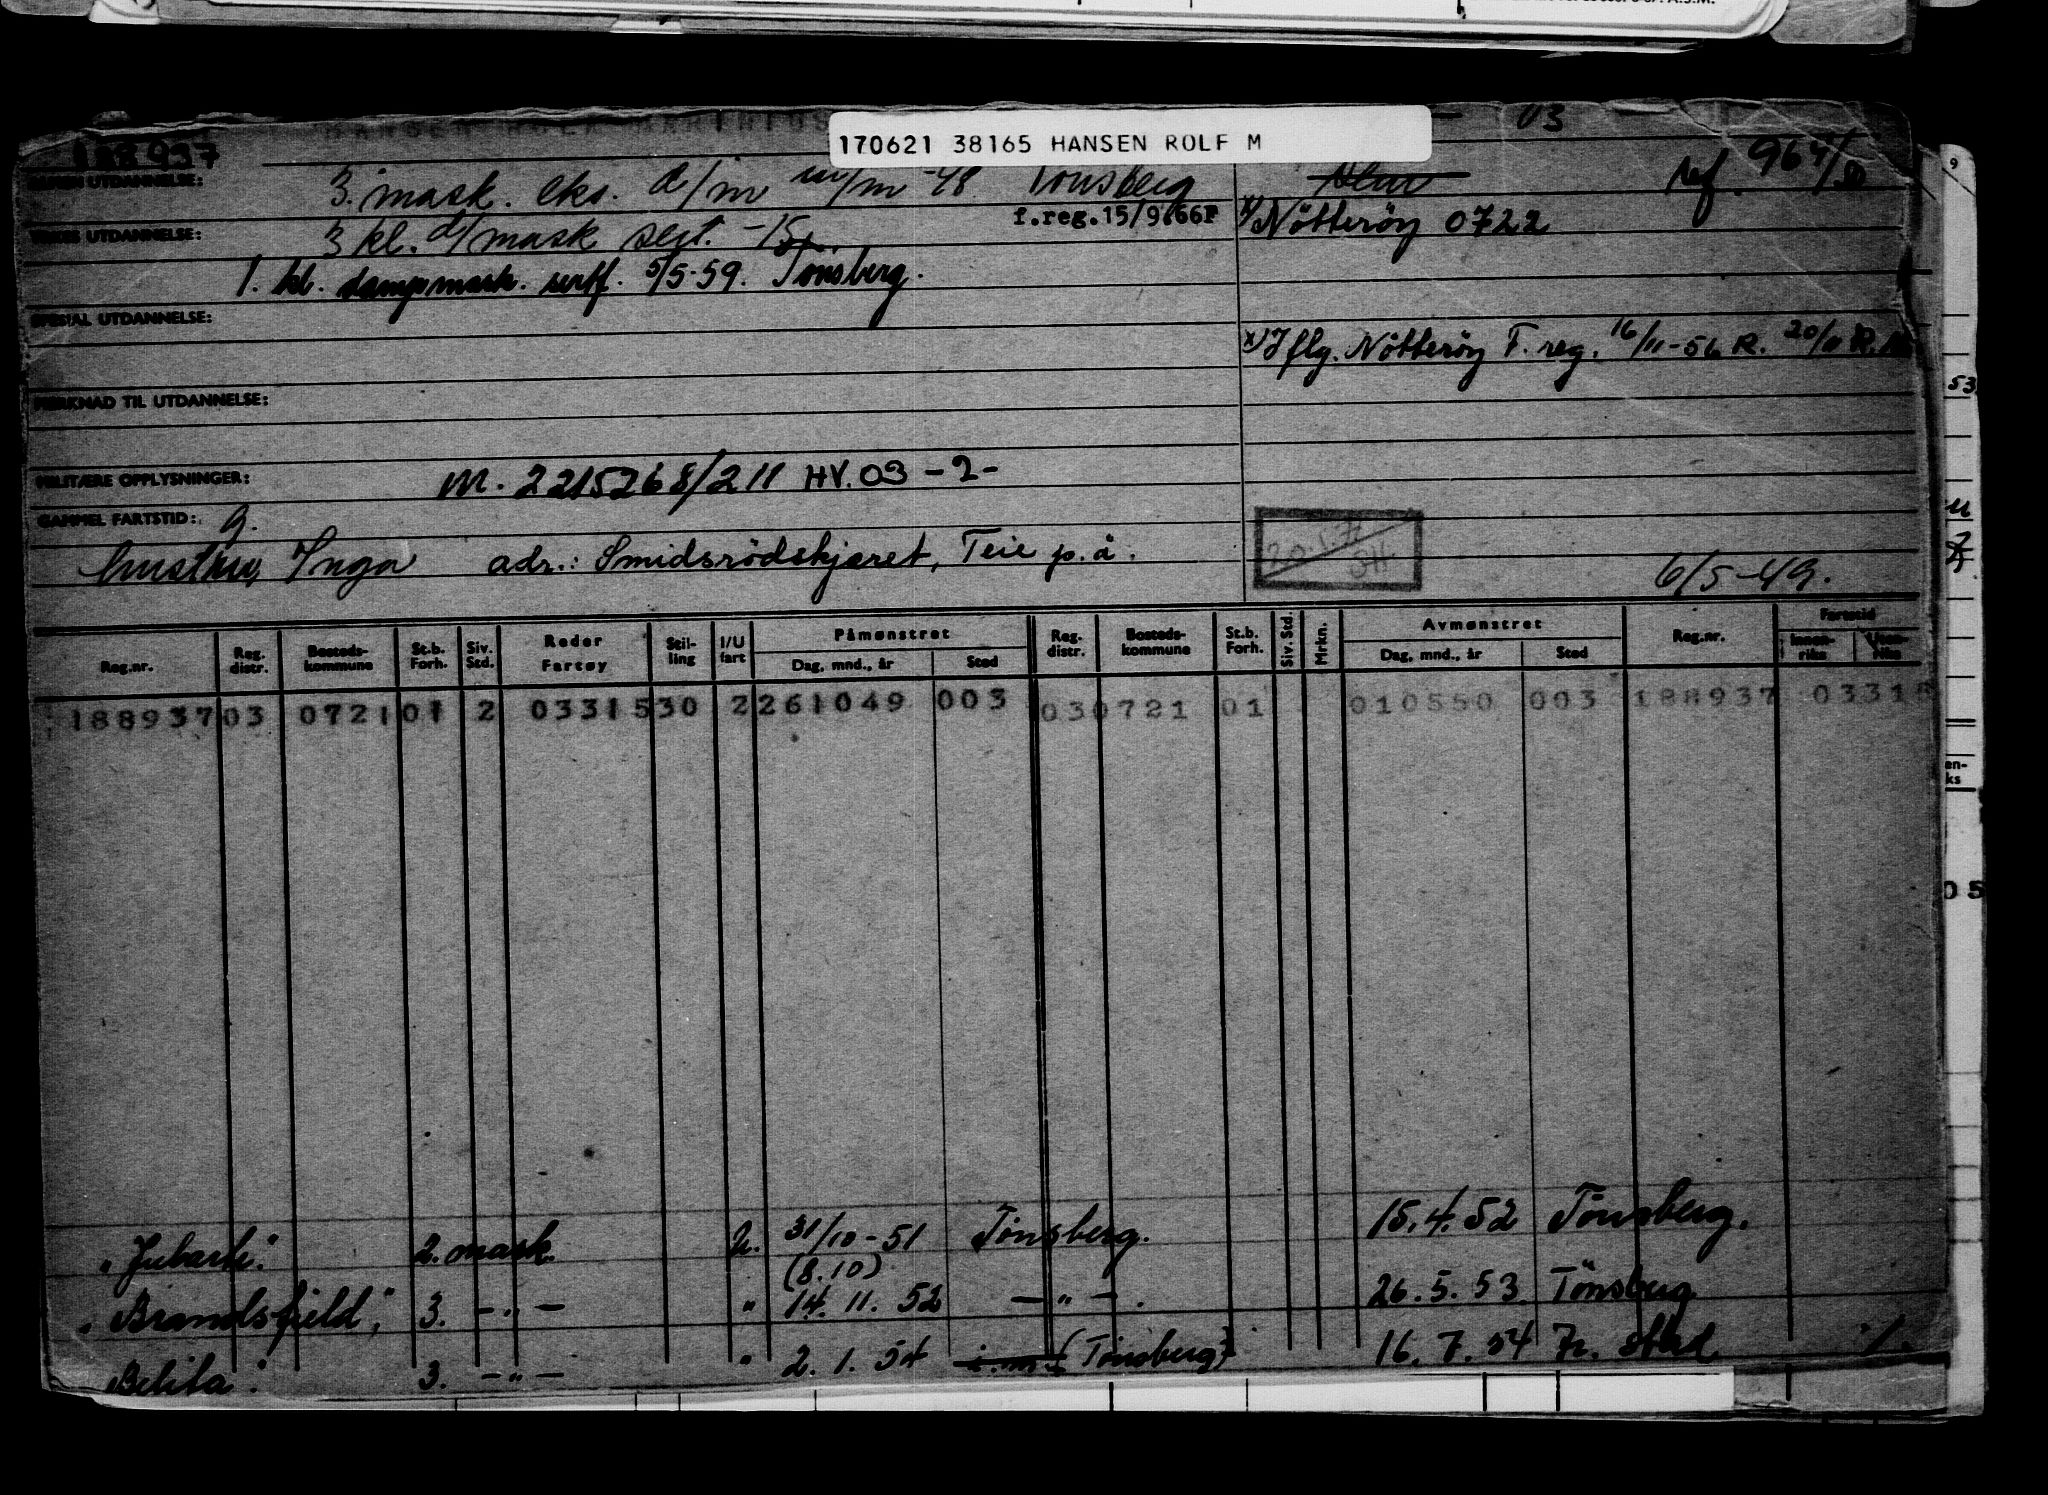 170621 38165 HANSEN ROLF M
03
188937
UTDANNELSE: 3. mask. eks. d/m m/m -48 Tönsberg
ref. 964/50
UTDANNELSE: 3 kl. d/mask sert. -15
f.reg.15/9.66
x/ Nötteröy 0722
1. kl. dampmask. sertf. 5/5-59. Tönsberg.
SPESIAL UTDANNELSE:
x) Iflg. Nötteröy F. reg. 16/11-56 R. 20/11
MERKNAD TIL UTDANNELSE:
MILITÆRE OPPLYSNINGER: M. 2215268/211 HV. 03 -2-
GAMMEL FARTSTID: G.
Hustru, Inga adr.: Smidsrödskjæret, Teie p.å.
6/5-49.
Reg.nr. Reg. distr. Bosteds-kommune St.b. Forh. Siv. Std. Reder Fartøy Stil-ling I/U fart Påmønstret Dag, mnd., år Sted Reg. distr. Bosteds-kommune St.b. Forh. Siv. Std. Mrkn. Avmønstret Dag, mnd., år Sted Reg.nr. Fartstid Innen-riks Uten-riks
188937 03 0721 01 2 03315 30 2 261049 003 03 0721 01 010550 003 188937 0331
"Jubarte". 2. mask. U. 31/10-51 Tönsberg. 15.4.52 Tönsberg.
(8.10)
"Brandsfjeld", 3. -"- " 14. 11. 52 -"-. 26.5.53 Tönsberg
Belita". 3. -"- " 2. 1. 54 (Tönsberg) 16. 7. 54 Fr. stad
53
en-
ks
05